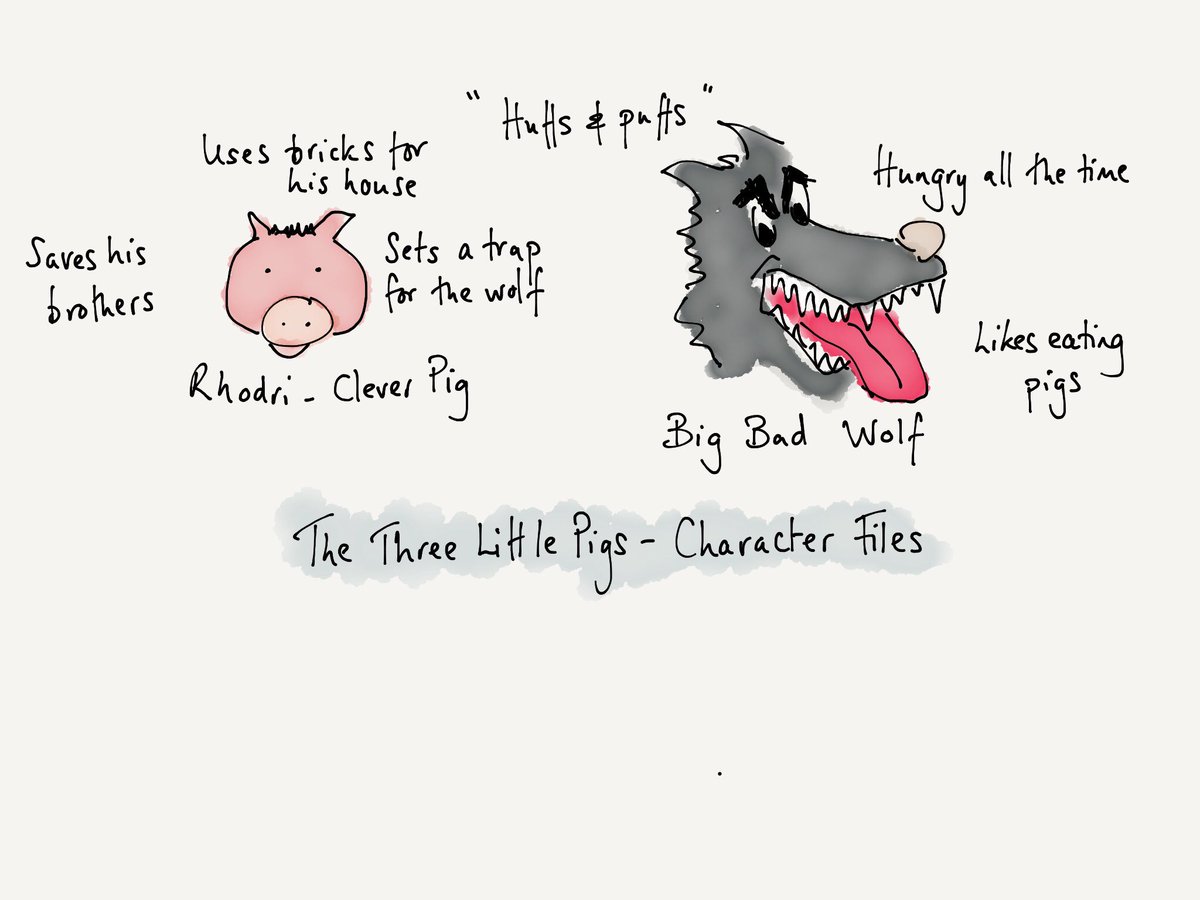 "Huffs & puffs"
Uses bricks for
his house
Saves his
brothers
Sets a trap
for the wolf
Rhodri - Clever Pig
Hungry all the time
Likes eating
pigs
Big Bad Wolf
The Three Little Pigs - Character Files